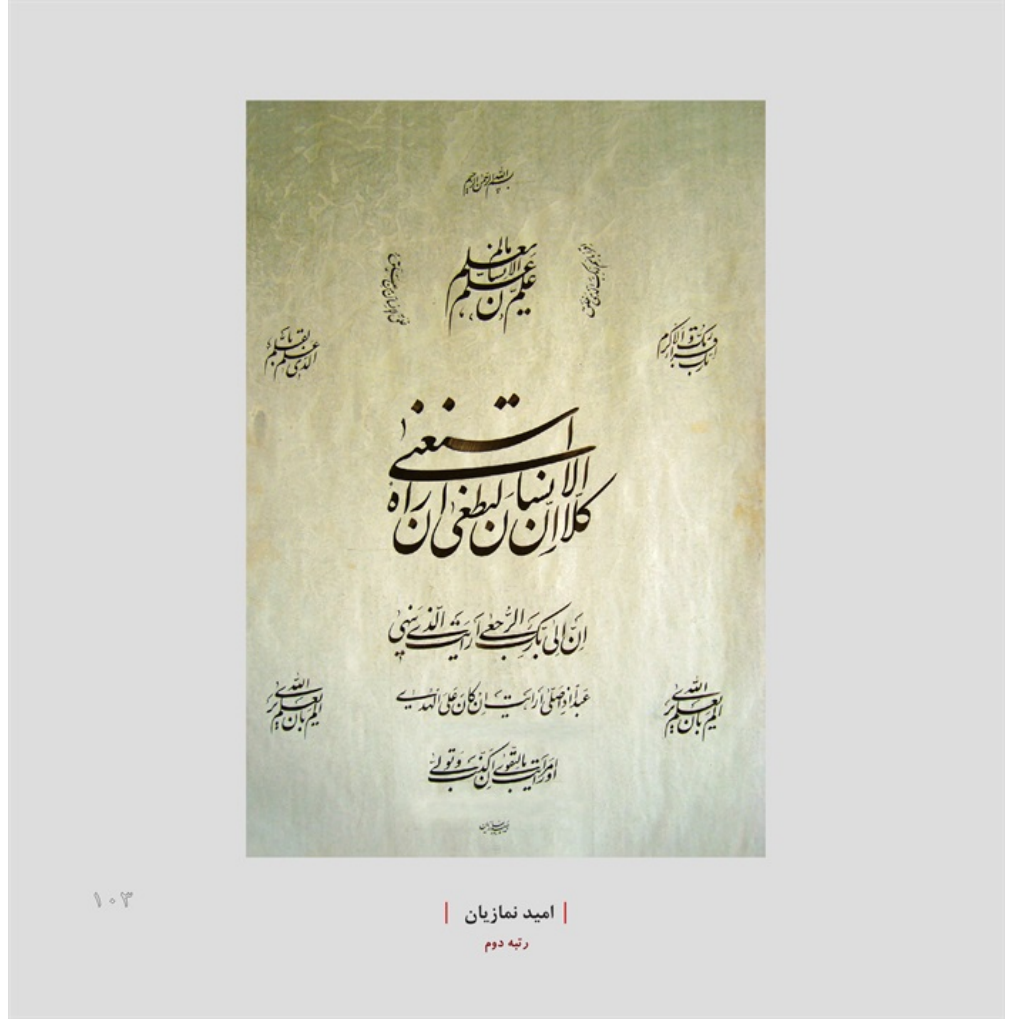 بسم الله الرحمن الرحیم
اقرأ باسم ربک الذی خلق
خلق الانسان من علق
علم الانسان ما لم یعلم
اقرا و ربک الاکرم
الذی علم بالقلم
کلّا اِنّ الانسانَ لیطغیٰ ان راٰه استغنیٰ
اِنَّ اِلیٰ ربّکَ الرُّجعیٰ اَرَاَیتَ الّذی ینهیٰ
عبداً اذا صلّیٰ اَراَیتَ اِن کانَ عَلَی الهُدیٰ
او اَمَرَ بالتّقویٰ اَراَیتَ اِن کذّبَ و تولّیٰ
الم یعلم بان الله یریٰ
الم یعلم بان الله یریٰ
۱۰۳
امید نمازیان
رتبه دوم